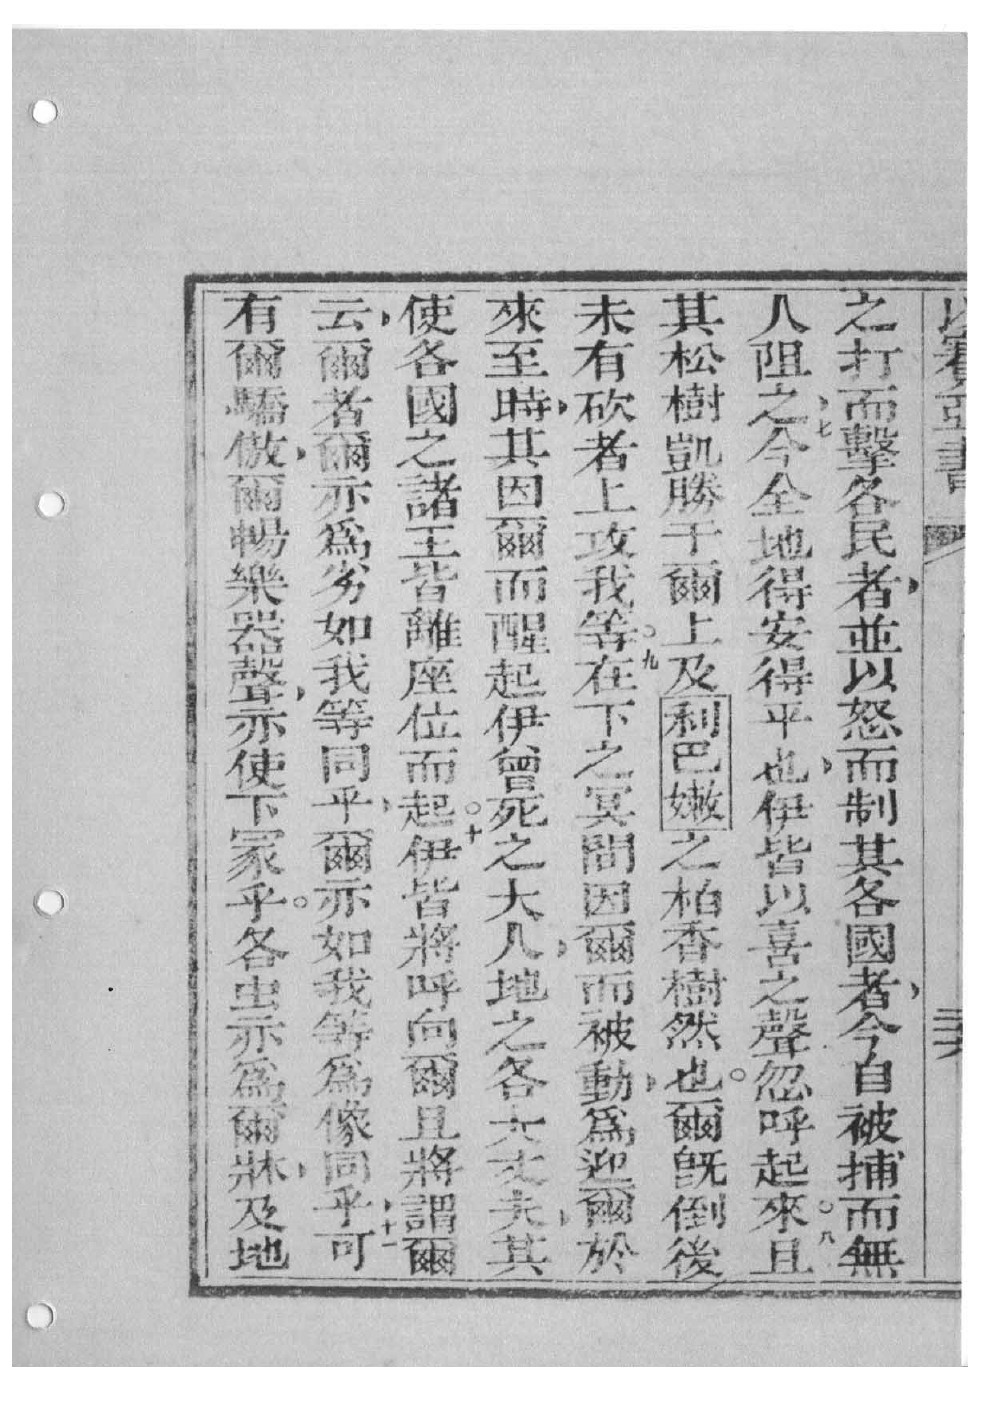 以賽亞書
之打而擊各民者並以怒而制其各國者今自被捕而無
人阻之七今全地得安得平也伊皆以喜之聲忽呼起來八且
其松樹凱勝于爾上及利巴嫩之柏香樹然也爾旣倒後
未有砍者上攻我等九在下之冥間因爾而被動爲迎爾於
來至時其因爾而醒起伊曾死之大人地之各大丈夫其
使各國之諸王皆離座位而起十伊皆將呼向爾且將謂爾
云爾者爾亦爲劣如我等同乎爾亦如我等爲像同乎十一可
有爾驕傲爾暢樂器聲亦使下冢乎各虫亦爲爾牀及地